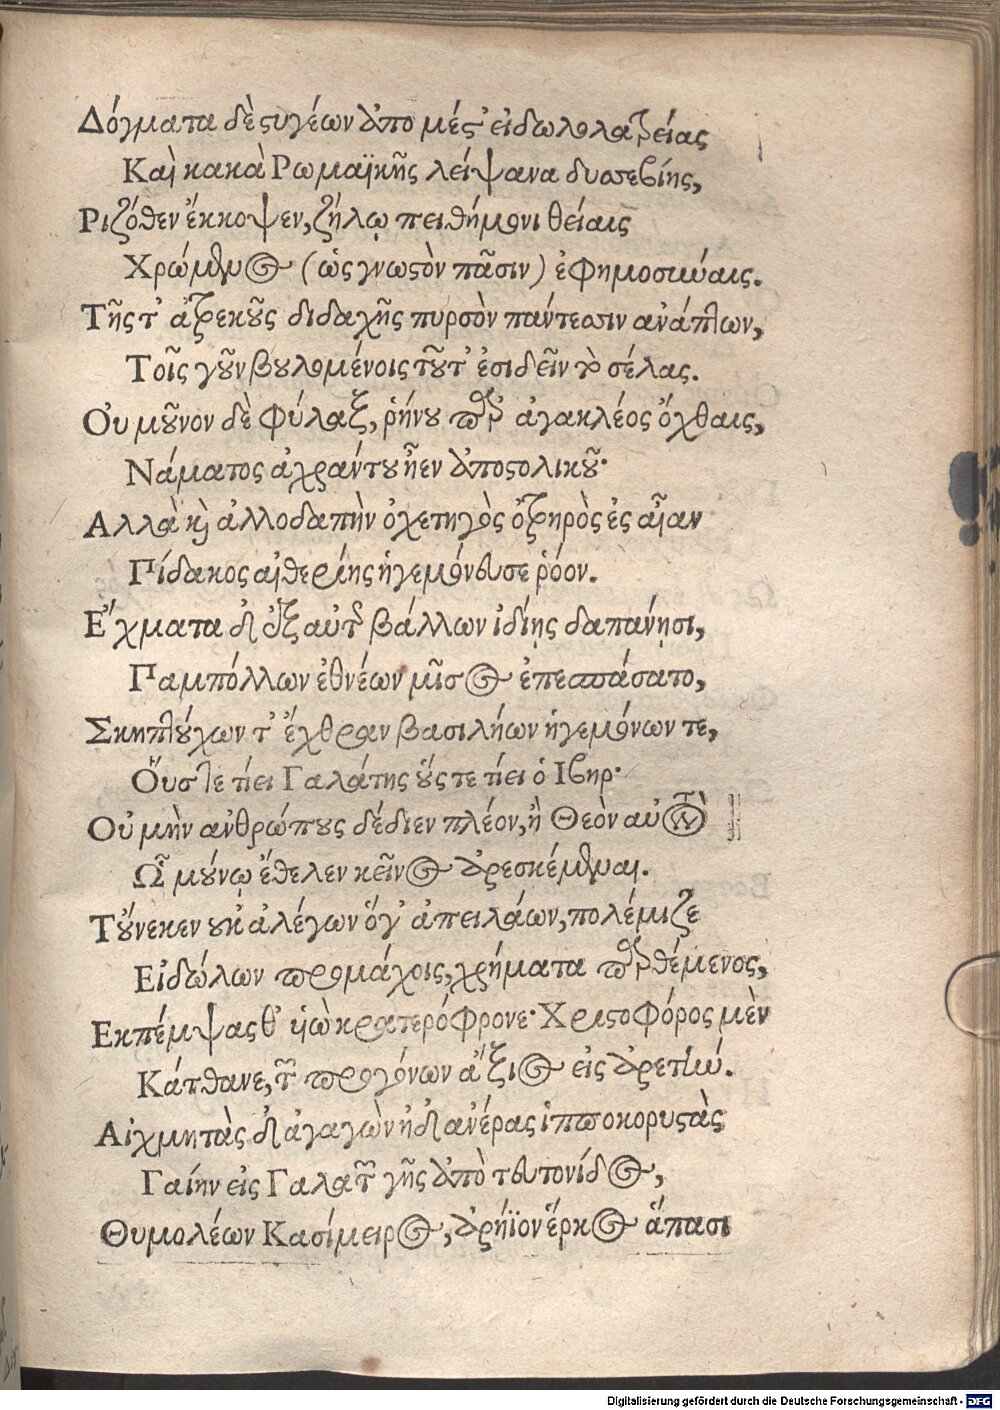 Δόγματα δὲ ϛυγέων ἀπο μέϛ' εἰδωλολατρείας
Καὶ κακὰ Ρωμαϊκῆς λείψανα δυσσεβίης,
Ριζόθεν ἔκκοψεν, ζήλῳ πειθήμονι θείαις
Χρώμενος (ὡς γνωϛὸν πᾶσιν) ἐφημοσύναις.
Τῆς τ' ἀτρεκοῦς διδαχῆς πυρσὸν πάντεσσιν ἀνάπτων,
Τοῖς γοῦν βουλομένοις τοῦτ' ἐσιδεῖν τὸ σέλας.
Οὐ μοῦνον δὲ φύλαξ, ῥήνου παρ' ἀγακλέος ὄχθαις,
Νάματος ἀχράντου ἦεν ἀποϛολικοῦ·
Αλλὰ καὶ ἀλλοδαπὴν ὀχετηγὸς ὀτρηρὸς ἐς αἶαν
Πίδακος αἰθερίης ἡγεμόνευσε ῥόον.
Εἴχματα δ' ἐξ αὐτοῦ βάλλων ἰδίης δαπάνησι,
Παμπόλλων ἐθνέων μῖσος ἐπεσπάσατο,
Σκηπτούχων τ' ἔχθραν βασιλήων ἡγεμόνων τε,
Οὕς τε τίει Γαλάτης οὕς τε τίει ὁ Ιβηρ·
Οὐ μὴν ἀνθρώπους δέδιεν πλέον, ἢ Θεὸν αὐτὸν
Ωι μούνῳ ἔθελεν κεῖνος ἀρεσκέμεναι.
Τοὔνεκεν οὐκ ἀλέγων ὅγ' ἀπειλάων, πολέμιζε
Εἰδώλων προμάχοις, χρήματα παρθέμενος,
Εκπέμψας θ' υἱὼ κρατερόφρονε· Χριϛοφόρος μὲν
Κάτθανε, τῶν προγόνων ἄξιος εἰς ἀρετήν.
Αἰχμητὰς δ' ἀγαγὼν ἠδ' ἀνέρας ἱπποκορυϛὰς
Γαίην εἰς Γαλατῶν γῆς ἀπὸ τευτονίδος,
Θυμολέων Κασίμειρος, ἀρήϊον ἕρκος ἅπασι
Digitalisierung gefördert durch die Deutsche Forschungsgemeinschaft - DFG